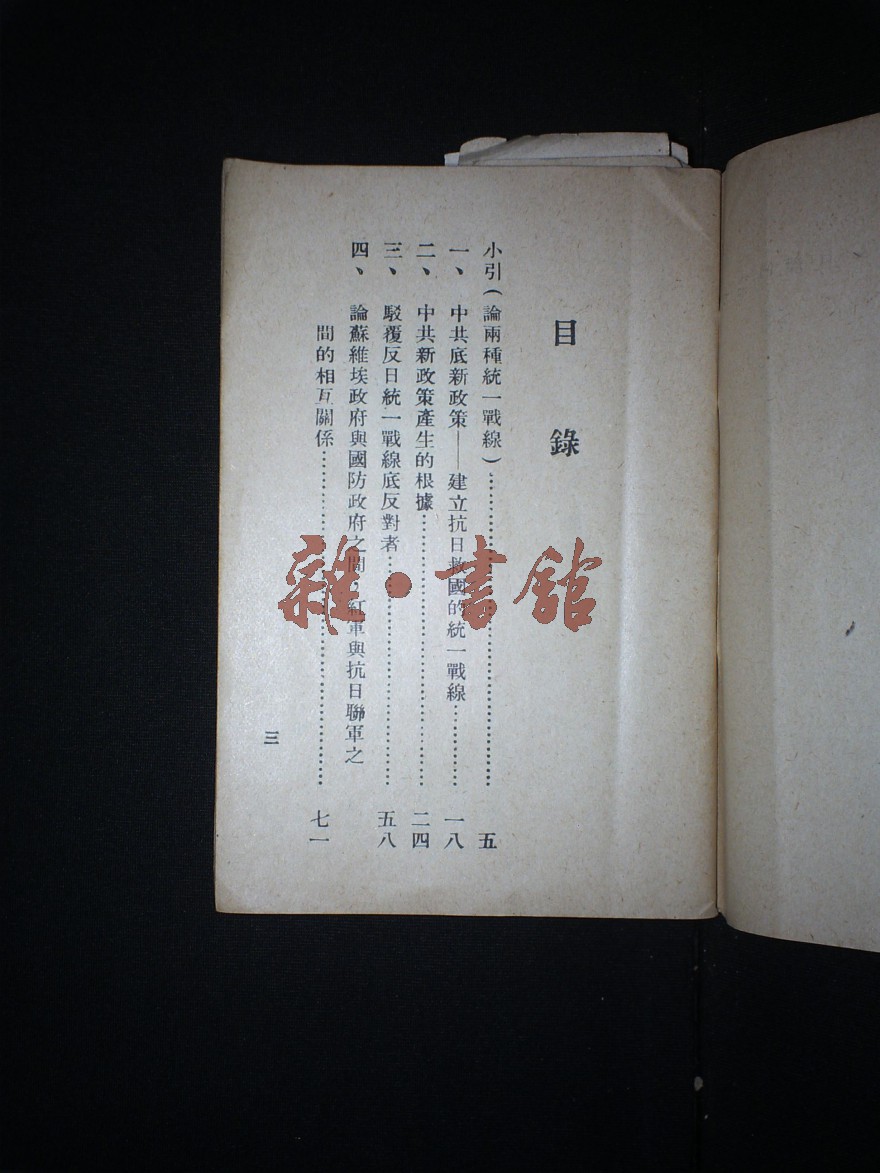 目錄
小引(論兩種統一戰線)……五
一、中共底新政策——建立抗日救國的統一戰線……一八
二、中共新政策產生的根據……二四
三、駁覆反日統一戰線底反對者……五八
四、論蘇維埃政府與國防政府之間,紅軍與抗日聯軍之
間的相互關係……七一
三
雜·書館